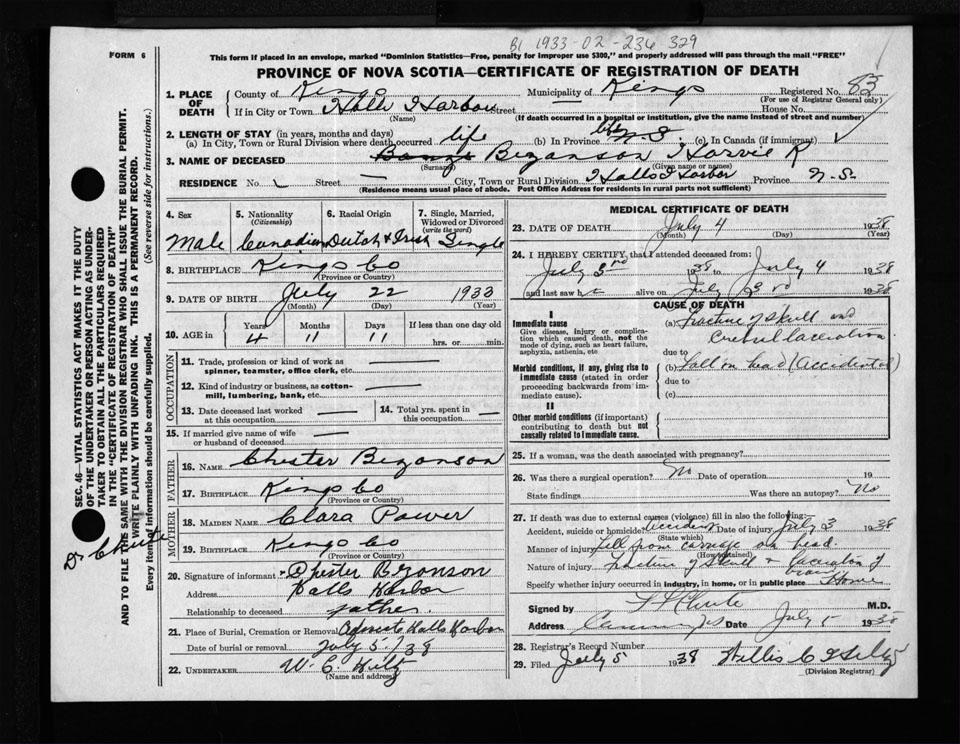 B1 1933-02-236-329
FORM 6
This form if placed in an envelope, marked "Dominion Statistics—Free, penalty for improper use $300," and properly addressed will pass through the mail "FREE"
PROVINCE OF NOVA SCOTIA—CERTIFICATE OF REGISTRATION OF DEATH
1. PLACE OF DEATH County of Kings Municipality of Kings Registered No. 83
(For use of Registrar General only)
If in City or Town Halls Harbor Street House No.
(Name) (If death occurred in a hospital or institution, give the name instead of street and number)
2. LENGTH OF STAY (in years, months and days)
(a) In City, Town or Rural Division where death occurred life (b) In Province life N.S. (c) In Canada (if immigrant)
3. NAME OF DECEASED Bezanson Harvie R
(Surname) (Given name or names)
RESIDENCE No. Street City, Town or Rural Division Halls Harbor Province N.S.
(Residence means usual place of abode. Post Office Address for residents in rural parts not sufficient)
4. Sex 5. Nationality (Citizenship) 6. Racial Origin 7. Single, Married, Widowed or Divorced (write the word)
Male Canadian Dutch & Irish Single
8. BIRTHPLACE Kings Co
(Province or Country)
9. DATE OF BIRTH July 22 1933
(Month) (Day) (Year)
10. AGE in Years Months Days If less than one day old
4 11 11 hrs. or min.
OCCUPATION
11. Trade, profession or kind of work as spinner, teamster, office clerk, etc. —
12. Kind of industry or business, as cotton-mill, lumbering, bank, etc. —
13. Date deceased last worked at this occupation — 14. Total yrs. spent in this occupation —
15. If married give name of wife or husband of deceased —
FATHER
16. NAME Chester Bezanson
17. BIRTHPLACE Kings Co
(Province or Country)
MOTHER
18. MAIDEN NAME Clara Power
19. BIRTHPLACE Kings Co
(Province or Country)
20. Signature of informant Chester Bezanson
Address Halls Harbor
Relationship to deceased father.
21. Place of Burial, Cremation or Removal Halls Harbor
Date of burial or removal July 5/38
22. UNDERTAKER W. C. Hiltz
(Name and address)
MEDICAL CERTIFICATE OF DEATH
23. DATE OF DEATH July 4 1938
(Month) (Day) (Year)
24. I HEREBY CERTIFY, that I attended deceased from:
July 3rd 1938 to July 4 1938
and last saw h alive on July 3rd 1938
CAUSE OF DEATH
I
Immediate cause
Give disease, injury or complication which caused death, not the mode of dying, such as heart failure, asphyxia, asthenia, etc
(a) Fracture of skull and
Cerebral laceration
due to
Morbid conditions, if any, giving rise to immediate cause (stated in order proceeding backwards from immediate cause).
(b) Fall on head (Accidental)
due to
(c)
II
Other morbid conditions (if important) contributing to death but not causally related to immediate cause.
25. If a woman, was the death associated with pregnancy?
26. Was there a surgical operation? No Date of operation 19
State findings Was there an autopsy? No
27. If death was due to external causes (violence) fill in also the following:
Accident, suicide or homicide? Accident Date of injury July 3 1938
(State which)
Manner of injury Fell from carriage on head.
(How sustained)
Nature of injury fracture of skull & laceration of brain
Specify whether injury occurred in industry, in home, or in public place Home
Signed by Chute M.D.
Address Date July 5 1938
28. Registrar's Record Number
29. Filed July 5 1938 Willis C Hiltz
(Division Registrar)
SEC. 46—VITAL STATISTICS ACT MAKES IT THE DUTY OF THE UNDERTAKER OR PERSON ACTING AS UNDERTAKER TO OBTAIN ALL THE PARTICULARS REQUIRED IN THE "CERTIFICATE OF REGISTRATION OF DEATH" AND TO FILE THE SAME WITH THE DIVISION REGISTRAR WHO SHALL ISSUE THE BURIAL PERMIT.
WRITE PLAINLY WITH UNFADING INK. THIS IS A PERMANENT RECORD.
Every item of information should be carefully supplied. (See reverse side for instructions.)
Dr Chute